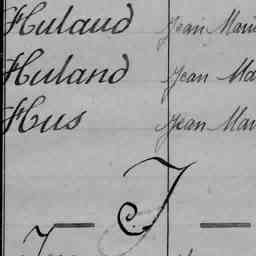 Hulaud Jean Marie
Huland Jean Ma
Hus Jean Mari
J